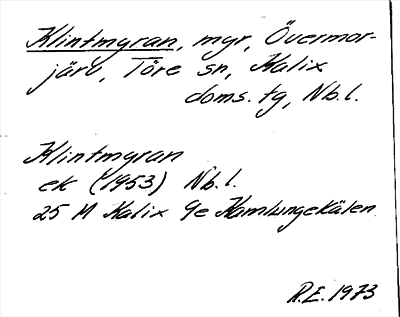 Klintmyran, myr, Övermor-
järv, Töre sn, Kalix
doms. tg, Nb. l.
Klintmyran
ek (1953) Nb. l.
25 M Kalix 9e Kamlungekälen
R.E. 1973